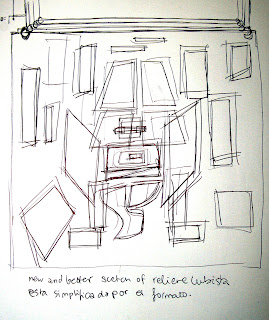 new and better scetch of relieve Cubista
esta simplificado por el formato.